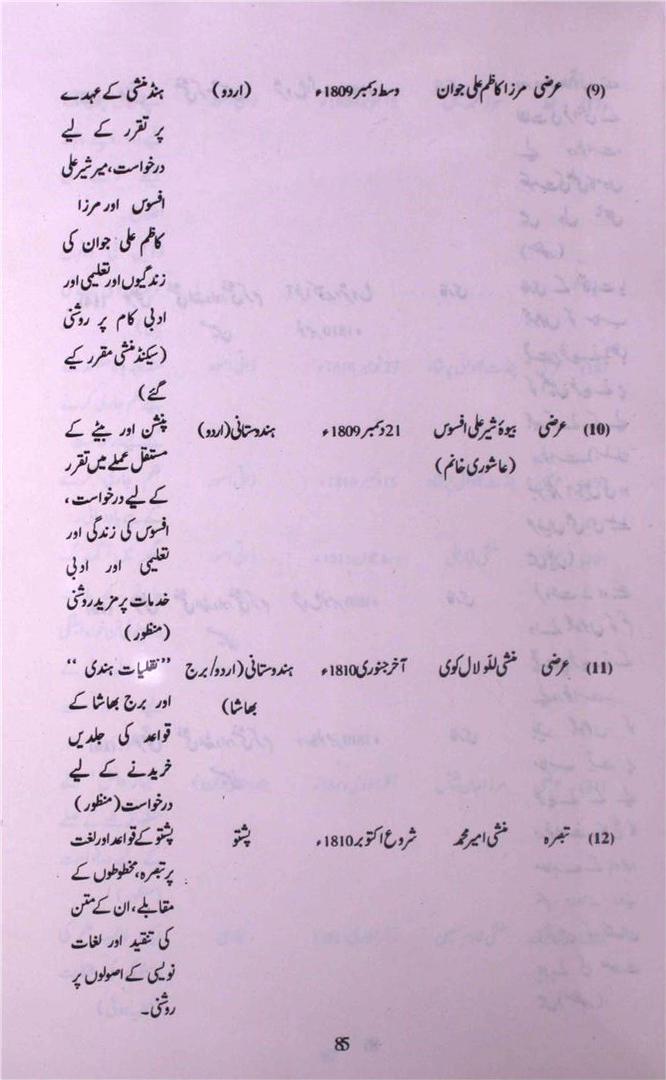 (9) عرضی مرزا کاظم علی جوان وسط دسمبر 1809ء (اردو) ہنڈ منشی کے عہدے
پر تقرر کے لیے
درخواست، میر شیر علی
افسوس اور مرزا
کاظم علی جوان کی
زندگیوں اور تعلیمی اور
ادبی کام پر روشنی
(سیکنڈ منشی مقرر کیے
گئے)
(10) عرضی بیوۂ شیر علی افسوس 21 دسمبر 1809ء ہندوستانی (اردو) پنشن اور بیٹے کے
(عاشوری خانم) مستقل عملے میں تقرر
کے لیے درخواست،
افسوس کی زندگی اور
تعلیمی اور ادبی
خدمات پر مزید روشنی
(منظور)
(11) عرضی منشی للو لال کوی آخر جنوری 1810ء ہندوستانی (اردو/برج "نقلیات ہندی"
بھاشا) اور برج بھاشا کے
قواعد کی جلدیں
خریدنے کے لیے
درخواست (منظور)
(12) تبصرہ منشی امیر محمد شروع اکتوبر 1810ء پشتو پشتو کے قواعد اور لغت
پر تبصرہ، مخطوطوں کے
مقابلے، ان کے متن
کی تنقید اور لغات
نویسی کے اصولوں پر
روشنی۔
85